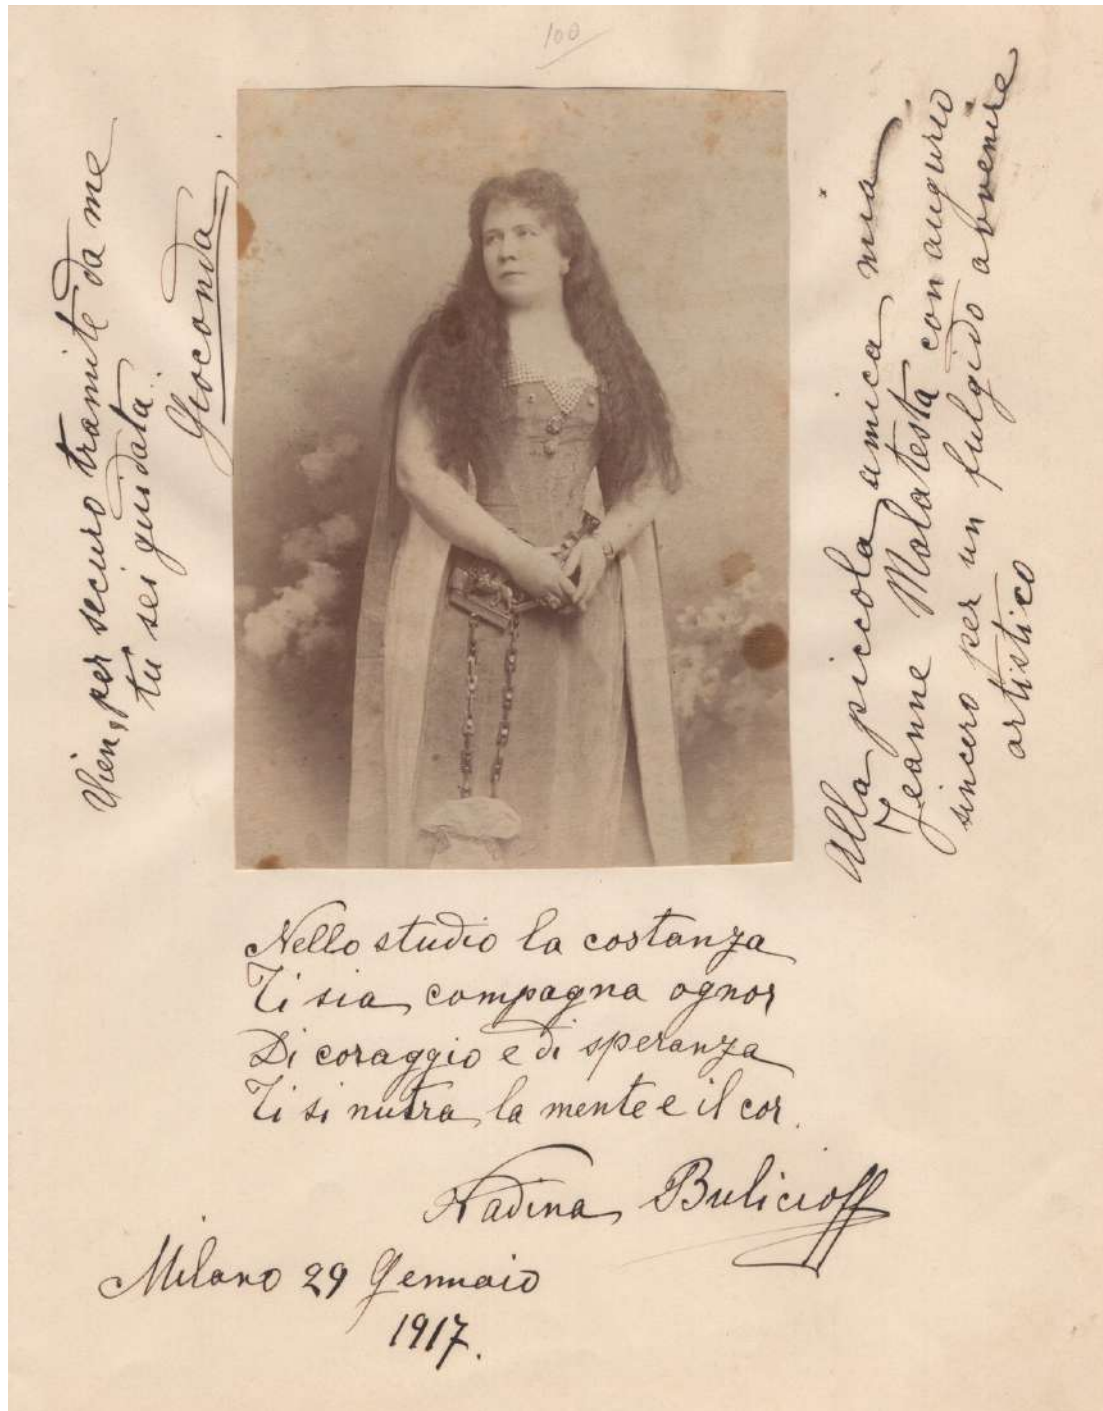 100
Vien, per securo tramite da me
tu sei guidata.
Gioconda
Alla piccola amica mia
Jeanne Malatesta con augurio
sincero per un fulgido avvenire
artistico
Nello studio la costanza
Ti sia compagna ognor
Di coraggio e di speranza
Ti si nutra la mente e il cor.
Nadina Bulicioff
Milano 29 Gennaio
1917.